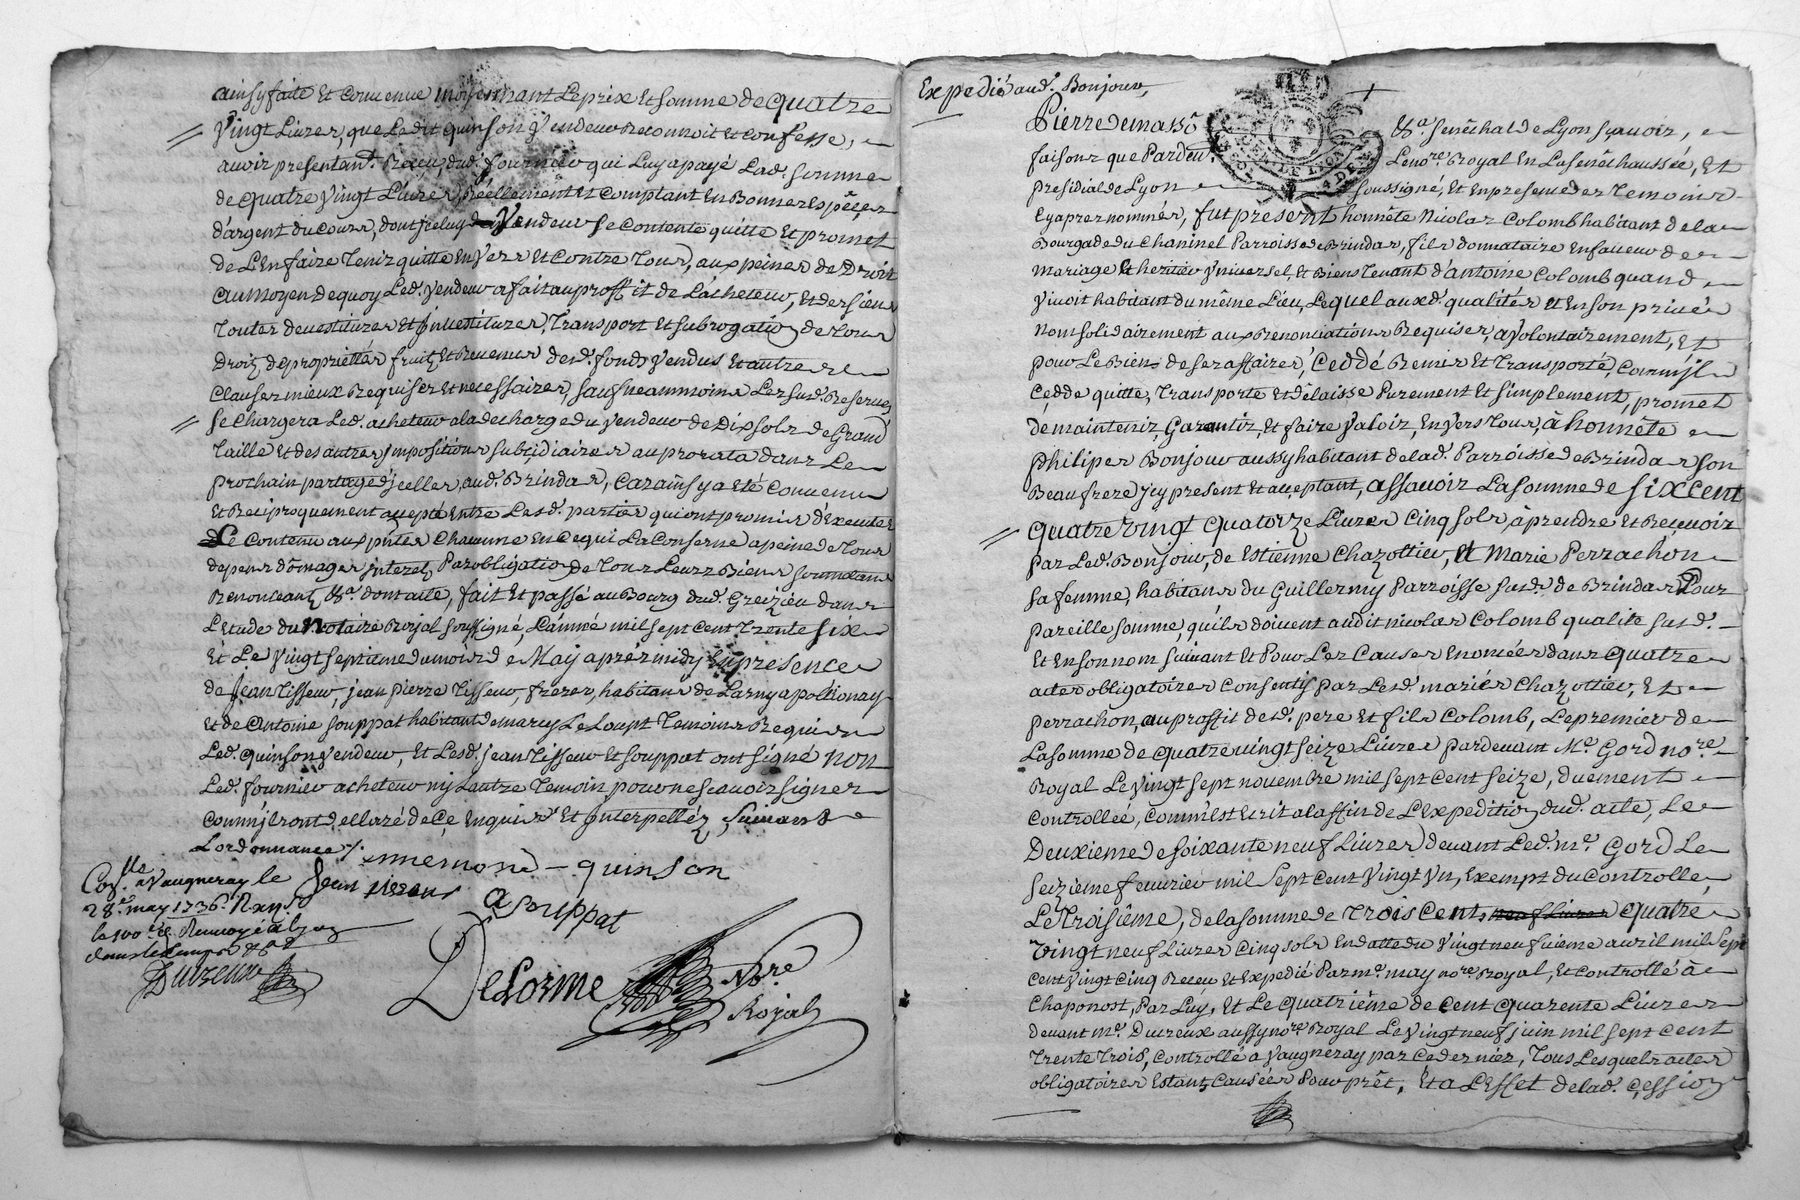 ainsy faite Et Convenue moyennant Le prix Et somme de quatre
Vingt Livres, que Ledit quinson Vendeur Reconnoit Et Confesse,
avoir presentem.t Reçeu, dud. fournier qui Luy a payé Lad. somme
de quatre Vingt Livres, Réellement Et Comptant En Bonnes Espêçes
d'argent du Cours, dont jceluy Vendeur se Contente quitte Et promet
de L'En faire Tenir quitte Envers Et Contre Tous, aux peines de Droit
au moyen de quoy Led. Vendeur a fait au proffit de L'acheteur, Et des siens
Toutes devestitures Et jnvestitures, Transport Et subrogation de Tous
Droitz de proprietté fruitz Et Revenus desd. fonds Vendus Et autres
Clauses mieux Requises Et necessaires, sauf neanmoins Les sus.d Reserves
se Chargera Led. acheteur a la decharge du Vendeur de Dix sols de Grand
Taille Et des autres jmpositions subsidiaires au prorata dans Le
prochain partage d'jcelles, aud. Brindas, Car ainsy a Eté Convenu
Et Reciproquement accepté Entre Lesd. parties qui ont promis d'Executer
Le Contenu aux p̃ntes Chacune En Ce qui La Conserne a peine de Tous
depens dômages jnterez Par obligation de Tous Leurs Biens soumissions
Renonceant &.a dont acte, fait Et passé au Bourg dud. Greizieu dans
L'Etude du Notaire Royal soussigné, L'année mil sept Cent Trente six
Et Le Vingt septieme du mois de May aprés midy En presence
de Jean Tisseur, jean pierre Tisseur, freres, habitans de Larny a pollionay
Et de Antoine souppat habitant de marcy Le Loup Temoins Requis
Led. quinson Vendeur, Et Lesd. jean Tisseur Et souppat ont signé non
Led. fournier acheteur ny Lautre Temoin pour ne sçavoir signer
Comm'jls ont declaré de Ce Enquis Et jnterpellez, suivant
Lordonnance ./.
ennemond - quinson
Jean tisseur
a souppat
Con.lle a Vaugneray le
28.e may 1736. R
le 100.e
Ducreux
DeLorme No.re
Royal
Expedié aud. Bonjour,
Pierre de masso &.a senêchal de Lyon sçavoir,
faisons que Pardev.t Le no.re Royal En La senêchaussée, Et
presidial de Lyon soussigné, Et En presence des Temoins
Cy aprez nommés, fut present honnête Nicolas Colomb habitant de la
Bourgade du Chaninel Parroisse de Brindas, fils donnataire En faveur de
mariage Et heritier Vniversel, Et Biens Tenant d'antoine Colomb quand
Vivoit habitant du même Lieu, Lequel aux d. qualités Et En son privé
nom solidairement aux Renonciations Requises, a Volontairement, Et
pour Le Bien de ses affaires, Ceddé Remis Et Transporté, Comm'jl
Cedde quitte, Transporte Et délaisse Purement Et simplement, promet
de maintenir, Garentir, Et faire Valoir, Envers Tous, à honnête
philipes Bonjour aussy habitant de lad. Parroisse de Brindas son
Beaufrere jcy present Et acceptant, assavoir La somme de six cent
quatre Vingt quatorze Livres Cinq sols, à prendre Et Recevoir
Par Led. Bonjour, de Estienne Chazottier, Et Marie Perrachon
sa femme, habitans du Guillermy Parroisse sus.d de Brindas Pour
pareille somme, qu'ils doivent audit nicolas Colomb qualité sus.d
Et En son nom suivant Et Pour Les Causes Enoncées dans quatre
actes obligatoires Consentis par Lesd. mariés Chazottier, Et
perrachon, au proffit desd. pere Et fils Colomb, Le premier de
La somme de quatre vingt seize Livres pardevant M.e Gord no.re
Royal Le Vingt sept novembre mil sept cent seize, duement
Controllée, Comm'Est Ecrit a la ffin de L'Expedition dud. acte, Le
Deuxieme de soixante neuf Livres devant Led. m.e Gord Le
seizieme fevrier mil sept cent vingt Vn, Exempt du Controlle,
Le Troisiême, de la somme de Trois Cent, neuf Livres quatre
Vingt neuf Livres Cinq sols En datte du Vingt neufuieme avril mil sept
cent Vingt Cinq Receu Et Expedié Par m.e may no.re Royal, Et Controllé à
Chaponost, Par Luy, Et Le quatriême de Cent quarente Livres
devant m.e Ducreux aussy no.re Royal Le Vingt neuf juin mil sept cent
Trente Trois, Controllé a Vaugneray par Ce dernier, Tous Lesquels actes
obligatoires Estant Causées Pour prêt, Et a L'Effet de lad. Cession